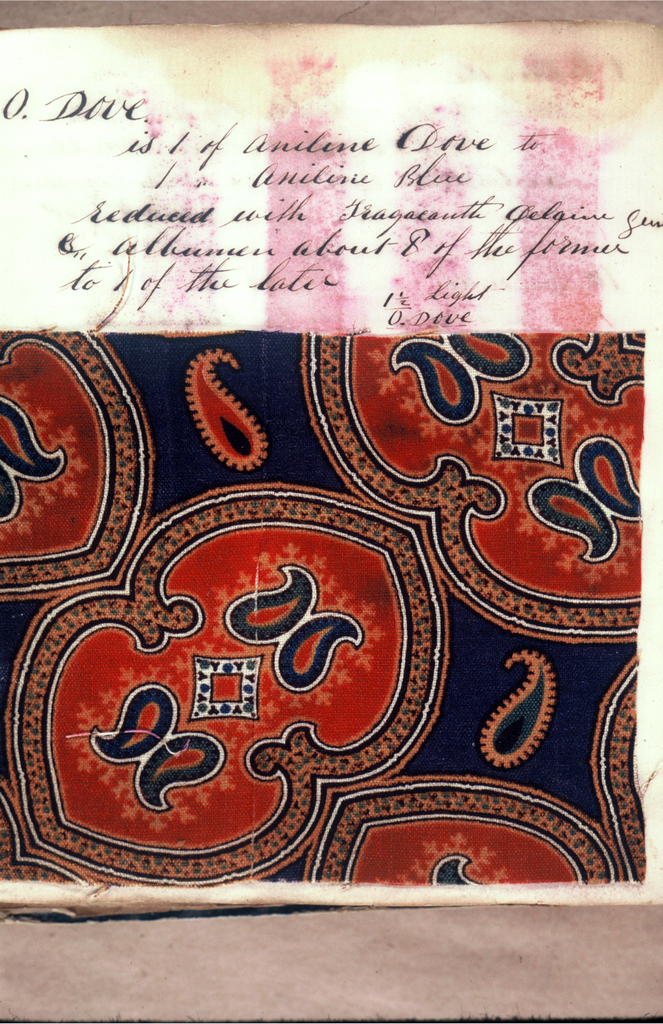 O. Dove
is 1 of Aniline Dove to
1 " Aniline Blue
reduced with Tragacanth Gelgine gum
& albumen about 8 of the former
to 1 of the later
1½ Light
O. Dove